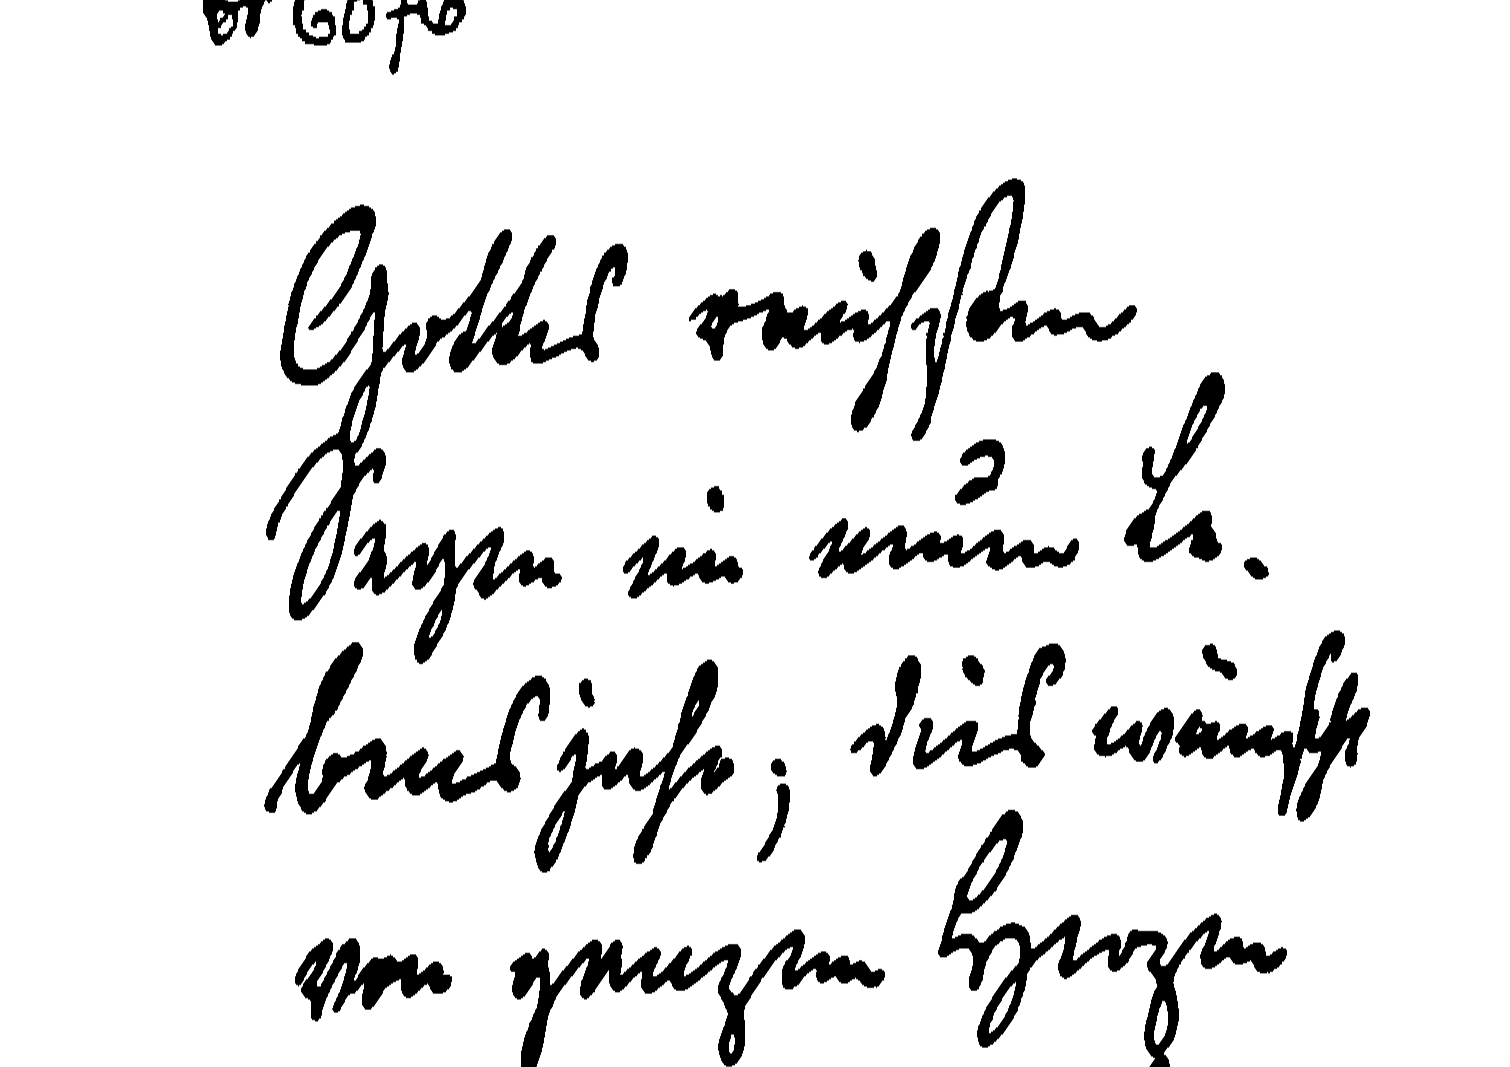 Gottes reichsten
Segen im neuen Le.
bensjahr; dies wünscht
von ganzem Herzen